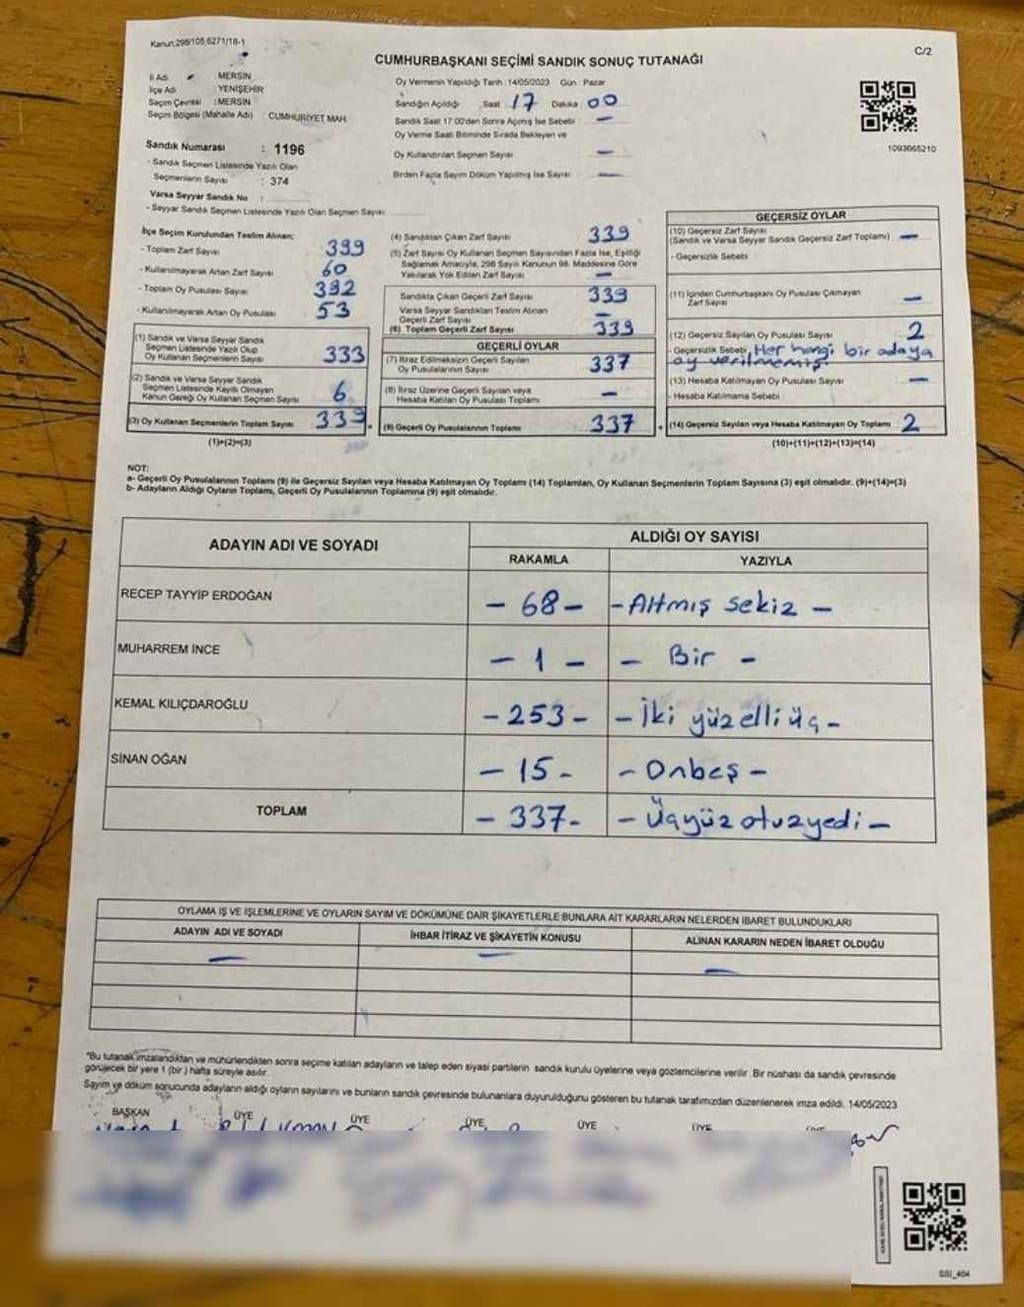 Kanun:298/105,6271/18-1
C/2
CUMHURBAŞKANI SEÇİMİ SANDIK SONUÇ TUTANAĞI
İl Adı : MERSİN
İlçe Adı : YENİŞEHİR
Seçim Çevresi : MERSİN
Seçim Bölgesi (Mahalle Adı) : CUMHURİYET MAH.
Sandık Numarası : 1196
- Sandık Seçmen Listesinde Yazılı Olan
Seçmenlerin Sayısı : 374
Varsa Seyyar Sandık No :
- Seyyar Sandık Seçmen Listesinde Yazılı Olan Seçmen Sayısı
Oy Vermenin Yapıldığı Tarih : 14/05/2023 Gün : Pazar
Sandığın Açıldığı Saat 17 Dakika 00
Sandık Saat 17:00'den Sonra Açılmış İse Sebebi : —
Oy Verme Saati Bitiminde Sırada Bekleyen ve
Oy Kullandırılan Seçmen Sayısı —
Birden Fazla Sayım Döküm Yapılmış İse Sayısı —
1093665210
İlçe Seçim Kurulundan Teslim Alınan:
- Toplam Zarf Sayısı 399
- Kullanılmayarak Artan Zarf Sayısı 60
- Toplam Oy Pusulası Sayısı 392
- Kullanılmayarak Artan Oy Pusulası 53
(1) Sandık ve Varsa Seyyar Sandık
Seçmen Listesinde Yazılı Olup
Oy Kullanan Seçmenlerin Sayısı 333
(2) Sandık ve Varsa Seyyar Sandık
Seçmen Listesinde Kayıtlı Olmayan
Kanun Gereği Oy Kullanan Seçmen Sayısı 6
(3) Oy Kullanan Seçmenlerin Toplam Sayısı 339
(1)+(2)=(3)
(4) Sandıktan Çıkan Zarf Sayısı 339
(5) Zarf Sayısı Oy Kullanan Seçmen Sayısından Fazla İse, Eşitliği
Sağlamak Amacıyla, 298 Sayılı Kanunun 98. Maddesine Göre
Yakılarak Yok Edilen Zarf Sayısı —
Sandıkta Çıkan Geçerli Zarf Sayısı 339
Varsa Seyyar Sandıktan Teslim Alınan
Geçerli Zarf Sayısı —
(6) Toplam Geçerli Zarf Sayısı 339
GEÇERLİ OYLAR
(7) İtiraz Edilmeksizin Geçerli Sayılan
Oy Pusulalarının Sayısı 337
(8) İtiraz Üzerine Geçerli Sayılan veya
Hesaba Katılan Oy Pusulası Toplamı —
(9) Geçerli Oy Pusulalarının Toplamı 337
GEÇERSİZ OYLAR
(10) Geçersiz Zarf Sayısı
(Sandık ve Varsa Seyyar Sandık Geçersiz Zarf Toplamı) —
- Geçersizlik Sebebi
(11) İçinden Cumhurbaşkanı Oy Pusulası Çıkmayan
Zarf Sayısı —
(12) Geçersiz Sayılan Oy Pusulası Sayısı 2
- Geçersizlik Sebebi Her hangi bir adaya
oy verilmemiş.
(13) Hesaba Katılmayan Oy Pusulası Sayısı —
- Hesaba Katılmama Sebebi
(14) Geçersiz Sayılan veya Hesaba Katılmayan Oy Toplamı 2
(10)+(11)+(12)+(13)=(14)
NOT:
a- Geçerli Oy Pusulalarının Toplamı (9) ile Geçersiz Sayılan veya Hesaba Katılmayan Oy Toplamı (14) Toplamları, Oy Kullanan Seçmenlerin Toplam Sayısına (3) eşit olmalıdır. (9)+(14)=(3)
b- Adayların Aldığı Oyların Toplamı, Geçerli Oy Pusulalarının Toplamına (9) eşit olmalıdır.
ADAYIN ADI VE SOYADI ALDIĞI OY SAYISI
RAKAMLA YAZIYLA
RECEP TAYYİP ERDOĞAN - 68 - - Altmış sekiz -
MUHARREM İNCE - 1 - - Bir -
KEMAL KILIÇDAROĞLU - 253 - - İki yüz elli üç -
SİNAN OĞAN - 15 - - Onbeş -
TOPLAM - 337 - - Üçyüz otuzyedi -
OYLAMA İŞ VE İŞLEMLERİNE VE OYLARIN SAYIM VE DÖKÜMÜNE DAİR ŞİKAYETLERLE BUNLARA AİT KARARLARIN NELERDEN İBARET BULUNDUKLARI
ADAYIN ADI VE SOYADI İHBAR İTİRAZ VE ŞİKAYETİN KONUSU ALINAN KARARIN NEDEN İBARET OLDUĞU
— — —
"Bu tutanak imzalandıktan ve mühürlendikten sonra seçime katılan adayların ve talep eden siyasi partilerin sandık kurulu üyelerine veya gözlemcilerine verilir. Bir nüshası da sandık çevresinde
görülecek bir yere 1 (bir) hafta süreyle asılır.
Sayım ve döküm sonucunda adayların aldığı oyların sayılarını ve bunların sandık çevresinde bulunanlara duyurulduğunu gösteren bu tutanak tarafımızdan düzenlenerek imza edildi. 14/05/2023
BAŞKAN ÜYE ÜYE ÜYE ÜYE ÜYE